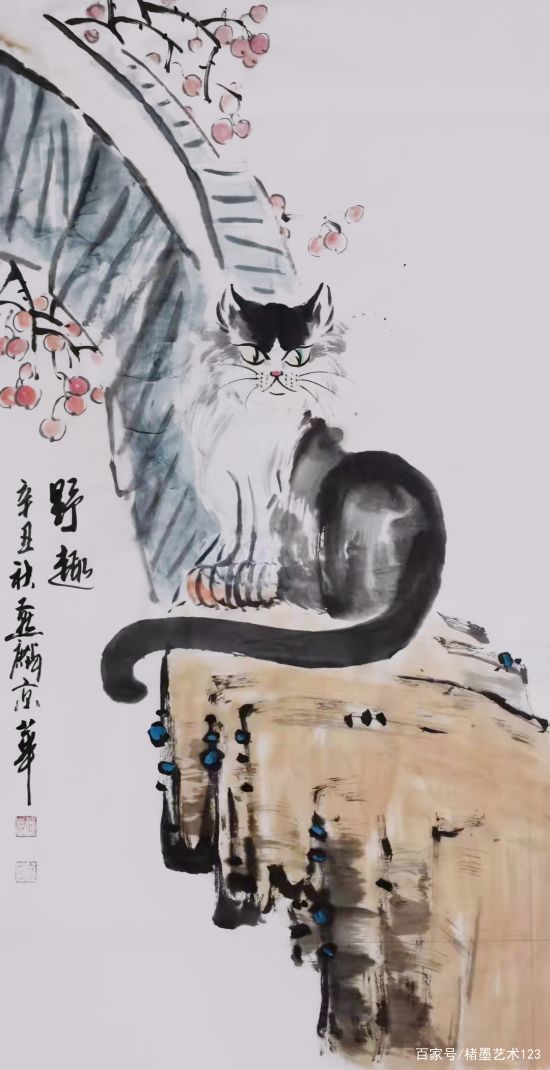 野趣
辛丑秋燕麟京華
百家号/楮墨艺术123